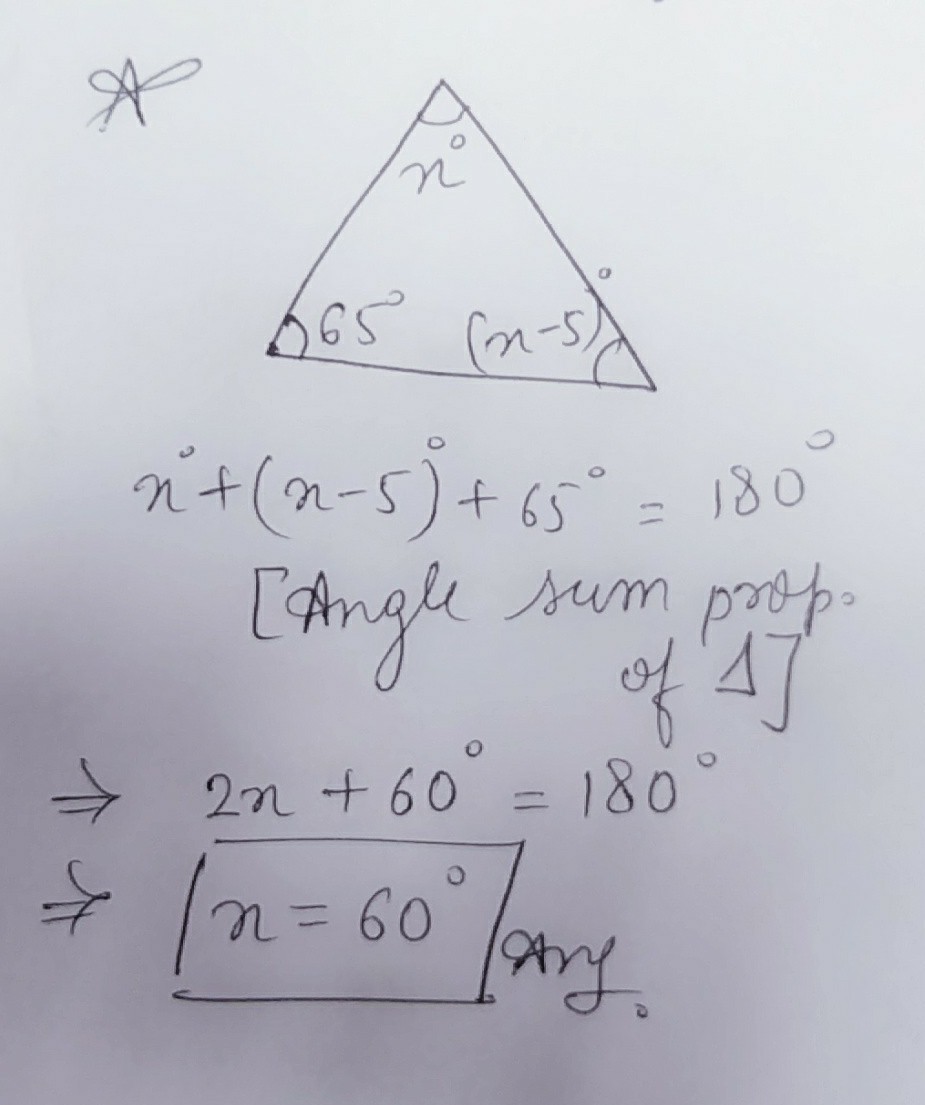 n°
65°
(n-5)°
n°+(n-5)°+65° = 180°
[Angle sum prop.
of Δ]
⇒ 2n + 60° = 180°
⇒ n = 60° Ans.